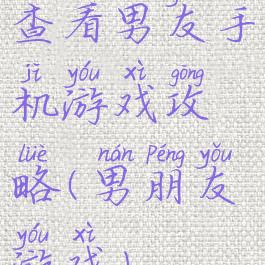 查看男友手
jī yóu xì gōng
机游戏攻
lüè nán Péng yǒu
略(男朋友
yóu xì
游戏)